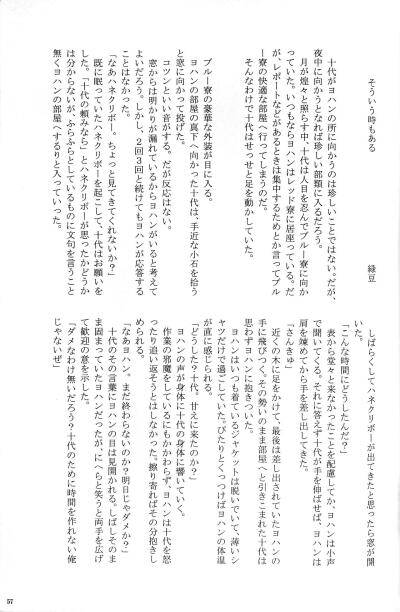 そういう時もある
緑豆
十代がヨハンの所に向かうのは珍しいことではない。だが、
夜中に向かうとなれば珍しい部類に入るだろう。
月が煌々と照らす中、十代は人目を忍んでブルー寮に向か
っていた。いつもならヨハンはレッド寮に居座っている。だ
が、レポートなどがあるときは集中するためとか言ってブル
ー寮の快適な部屋へ行ってしまうのだ。
そんなわけで十代はせっせと足を動かしていた。
ブルー寮の豪華な外装が目に入る。
ヨハンの部屋の真下へ向かった十代は、手近な小石を拾う
と窓に向かって投げた。
コツンといい音がする。だが反応はない。
窓からは明かりが漏れているからヨハンがいると考えて
よいだろう。しかし、2回3回と続けてもヨハンが応答する
ことはなかった。
「なあハネクリボー。ちょっと見てきてくれないか?」
既に眠っていたハネクリボーを起こして、十代はお願いを
した。「十代の頼みなら」とハネクリボーが思ったかどうか
は分からないが、ふらふらとしているものに文句を言うこと
無くヨハンの部屋へするりと入っていった。
しばらくしてハネクリボーが出てきたと思ったら窓が開
いた。
「こんな時間にどうしたんだ?」
表から堂々と来なかったことを配慮してか、ヨハンは小声
で聞いてくる。それに答えず十代が手を伸ばせば、ヨハンは
肩を竦めてから手を差し出してきた。
「さんきゅ」
近くの木に足をかけて、最後は差し出されていたヨハンの
手に飛びつく。その勢いのまま部屋へと引きこまれた十代は
思わずヨハンに抱きついた。
ヨハンはいつも着ているジャケットは脱いでいて、薄いシ
ャツだけで過ごしていた。ぴたりとくっつけばヨハンの体温
が直に感じられる。
「どうした?十代。甘えに来たのか?」
ヨハンの声が身体に十代の身体に響いていく。
作業の邪魔をしているにもかかわらず、ヨハンは十代を怒
ったり追い返そうとはしなかった。擦り寄ればその分抱きし
められる。
「なあヨハン。まだ終わらないのか?明日じゃダメか?」
十代のその言葉にヨハンの目は見開かれる。しばしそのま
ま固まっていたヨハンだったが、にへらと笑うと両手を広げ
て歓迎の意を示した。
「ダメなわけ無いだろう?十代のために時間を作れない俺
じゃないぜ」
57